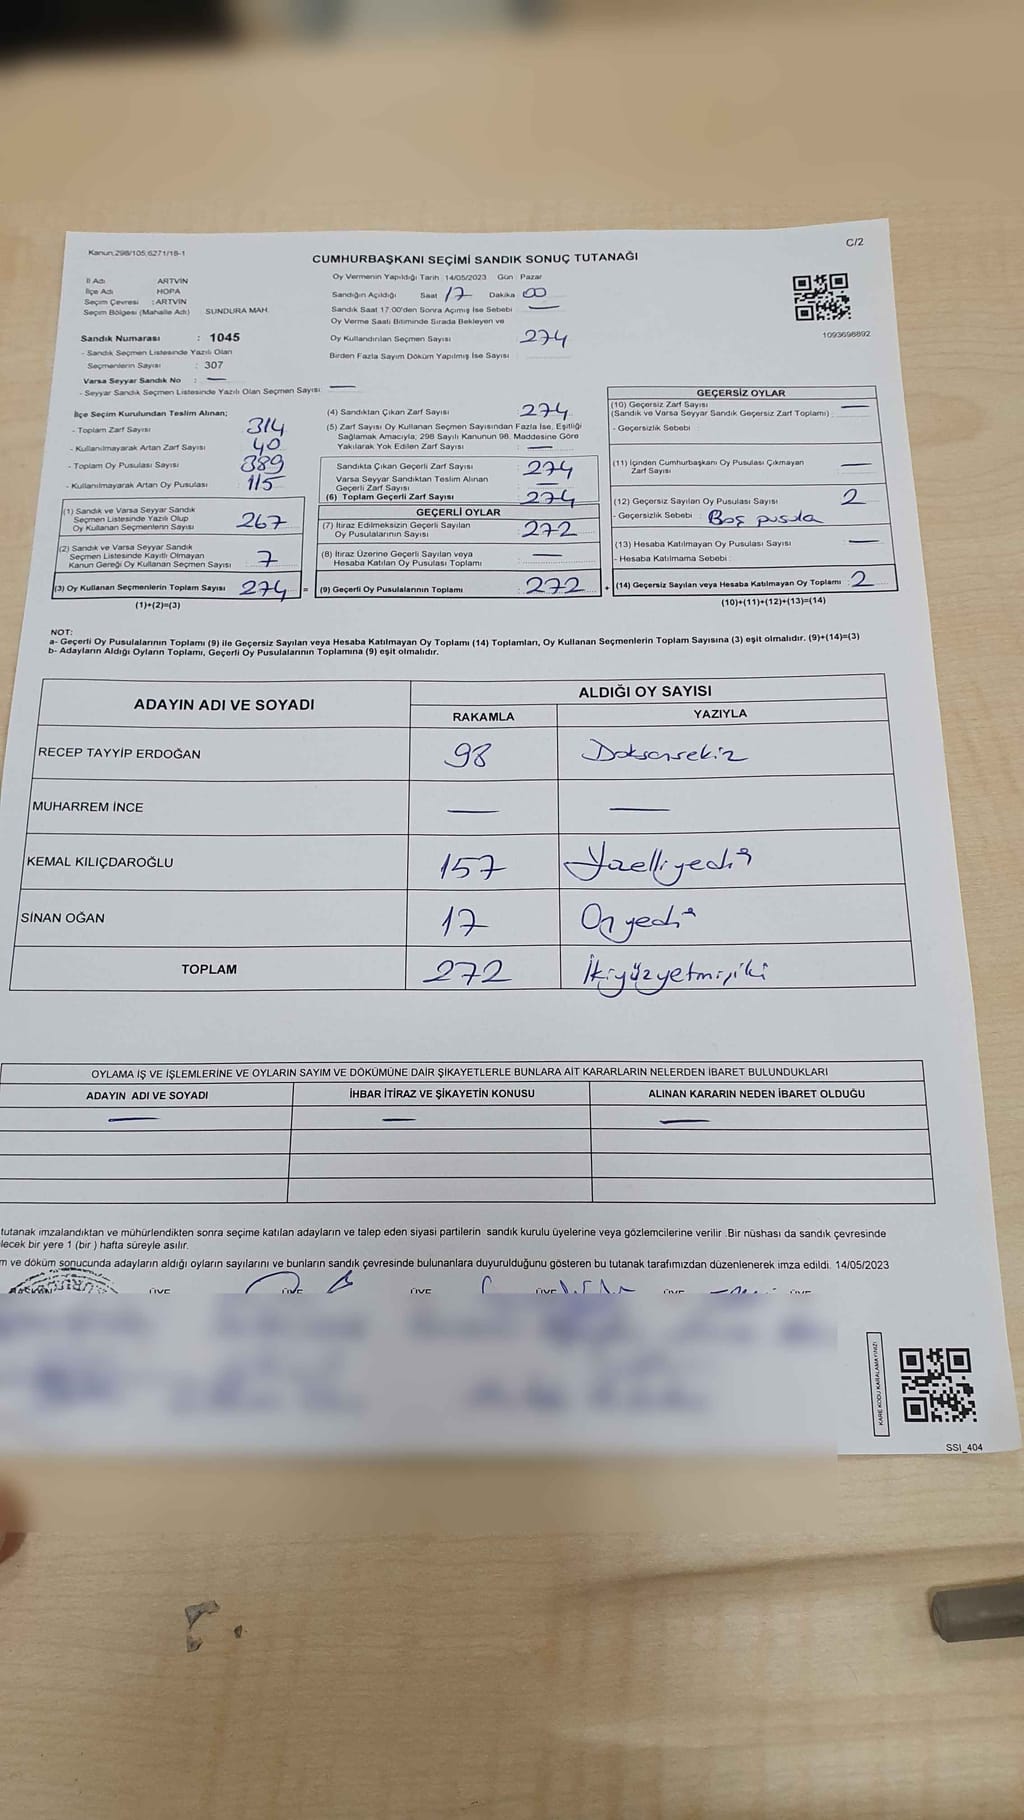 Kanun;298/105;6271/18-1
C/2
CUMHURBAŞKANI SEÇİMİ SANDIK SONUÇ TUTANAĞI
İl Adı ARTVİN
İlçe Adı HOPA
Seçim Çevresi : ARTVİN
Seçim Bölgesi (Mahalle Adı) SUNDURA MAH.
Sandık Numarası : 1045
- Sandık Seçmen Listesinde Yazılı Olan
Seçmenlerin Sayısı : 307
Varsa Seyyar Sandık No : —
- Seyyar Sandık Seçmen Listesinde Yazılı Olan Seçmen Sayısı : —
Oy Vermenin Yapıldığı Tarih : 14/05/2023 Gün : Pazar
Sandığın Açıldığı Saat 17 Dakika 00
Sandık Saat 17:00'den Sonra Açımış İse Sebebi —
Oy Verme Saati Bitiminde Sırada Bekleyen ve
Oy Kullandırılan Seçmen Sayısı 274
Birden Fazla Sayım Döküm Yapılmış İse Sayısı :
1093698892
İlçe Seçim Kurulundan Teslim Alınan;
- Toplam Zarf Sayısı 314
- Kullanılmayarak Artan Zarf Sayısı 40
- Toplam Oy Pusulası Sayısı 389
- Kullanılmayarak Artan Oy Pusulası 115
(1) Sandık ve Varsa Seyyar Sandık
Seçmen Listesinde Yazılı Olup
Oy Kullanan Seçmenlerin Sayısı 267
(2) Sandık ve Varsa Seyyar Sandık
Seçmen Listesinde Kayıtlı Olmayan
Kanun Gereği Oy Kullanan Seçmen Sayısı : 7
(3) Oy Kullanan Seçmenlerin Toplam Sayısı 274 =
(1)+(2)=(3)
(4) Sandıktan Çıkan Zarf Sayısı 274
(5) Zarf Sayısı Oy Kullanan Seçmen Sayısından Fazla İse, Eşitliği
Sağlamak Amacıyla; 298 Sayılı Kanunun 98. Maddesine Göre
Yakılarak Yok Edilen Zarf Sayısı —
Sandıkta Çıkan Geçerli Zarf Sayısı : 274
Varsa Seyyar Sandıktan Teslim Alınan
Geçerli Zarf Sayısı —
(6) Toplam Geçerli Zarf Sayısı : 274
GEÇERLİ OYLAR
(7) İtiraz Edilmeksizin Geçerli Sayılan
Oy Pusulalarının Sayısı : 272
(8) İtiraz Üzerine Geçerli Sayılan veya
Hesaba Katılan Oy Pusulası Toplamı : —
(9) Geçerli Oy Pusulalarının Toplamı : 272 +
GEÇERSİZ OYLAR
(10) Geçersiz Zarf Sayısı
(Sandık ve Varsa Seyyar Sandık Geçersiz Zarf Toplamı) : —
- Geçersizlik Sebebi :
(11) İçinden Cumhurbaşkanı Oy Pusulası Çıkmayan
Zarf Sayısı : —
(12) Geçersiz Sayılan Oy Pusulası Sayısı : 2
- Geçersizlik Sebebi : Boş pusula
(13) Hesaba Katılmayan Oy Pusulası Sayısı : —
- Hesaba Katılmama Sebebi :
(14) Geçersiz Sayılan veya Hesaba Katılmayan Oy Toplamı : 2
(10)+(11)+(12)+(13)=(14)
NOT:
a- Geçerli Oy Pusulalarının Toplamı (9) ile Geçersiz Sayılan veya Hesaba Katılmayan Oy Toplamı (14) Toplamları, Oy Kullanan Seçmenlerin Toplam Sayısına (3) eşit olmalıdır. (9)+(14)=(3)
b- Adayların Aldığı Oyların Toplamı, Geçerli Oy Pusulalarının Toplamına (9) eşit olmalıdır.
ADAYIN ADI VE SOYADI ALDIĞI OY SAYISI
RAKAMLA YAZIYLA
RECEP TAYYİP ERDOĞAN 98 Doksansekiz
MUHARREM İNCE — —
KEMAL KILIÇDAROĞLU 157 Yüzelliyedi
SİNAN OĞAN 17 Onyedi
TOPLAM 272 İkiyüzyetmişiki
OYLAMA İŞ VE İŞLEMLERİNE VE OYLARIN SAYIM VE DÖKÜMÜNE DAİR ŞİKAYETLERLE BUNLARA AİT KARARLARIN NELERDEN İBARET BULUNDUKLARI
ADAYIN ADI VE SOYADI İHBAR İTİRAZ VE ŞİKAYETİN KONUSU ALINAN KARARIN NEDEN İBARET OLDUĞU
— — —
tutanak imzalandıktan ve mühürlendikten sonra seçime katılan adayların ve talep eden siyasi partilerin sandık kurulu üyelerine veya gözlemcilerine verilir .Bir nüshası da sandık çevresinde
lecek bir yere 1 (bir ) hafta süreyle asılır.
m ve döküm sonucunda adayların aldığı oyların sayılarını ve bunların sandık çevresinde bulunanlara duyurulduğunu gösteren bu tutanak tarafımızdan düzenlenerek imza edildi. 14/05/2023
BAŞKAN ÜYE ÜYE ÜYE ÜYE ÜYE ÜYE
KARE KODU KARALAMAYINIZ!
SSI_404